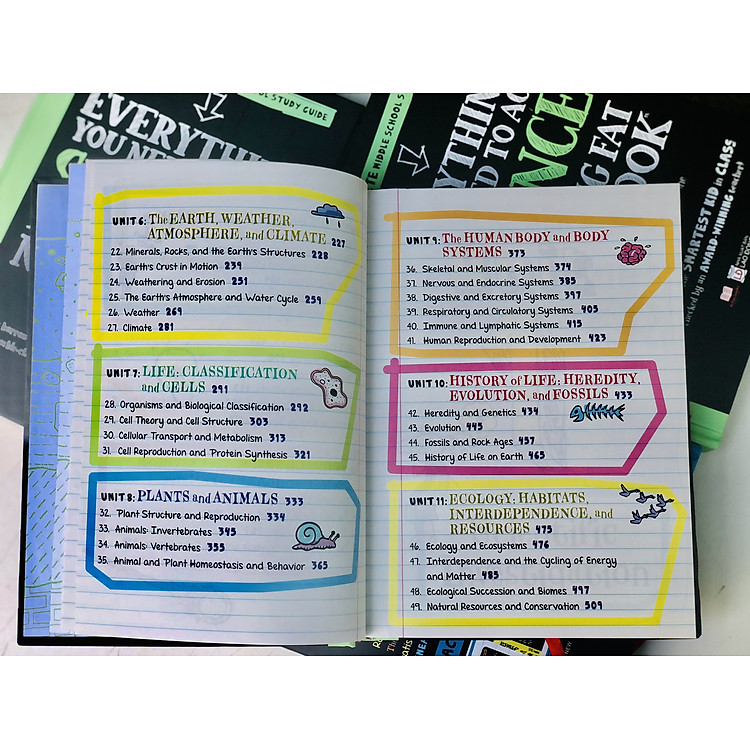 OL STUDY GUIDE
EVERYTHI
YOU NE
TE MIDDLE SCHOOL S
YTHIN
D TO AC
NCE
G FAT
OOK
SMARTEST KID in CLASS
checked by an AWARD-WINNING teacher)
UNIT 6: The EARTH, WEATHER,
ATMOSPHERE, and CLIMATE 227
22. Minerals, Rocks, and the Earth's Structures 228
23. Earth's Crust in Motion 239
24. Weathering and Erosion 251
25. The Earth's Atmosphere and Water Cycle 259
26. Weather 269
27. Climate 281
UNIT 7: LIFE: CLASSIFICATION
and CELLS 291
28. Organisms and Biological Classification 292
29. Cell Theory and Cell Structure 303
30. Cellular Transport and Metabolism 313
31. Cell Reproduction and Protein Synthesis 321
UNIT 8: PLANTS and ANIMALS 333
32. Plant Structure and Reproduction 334
33. Animals: Invertebrates 345
34. Animals: Vertebrates 355
35. Animal and Plant Homeostasis and Behavior 365
UNIT 9: The HUMAN BODY and BODY
SYSTEMS 373
36. Skeletal and Muscular Systems 374
37. Nervous and Endocrine Systems 385
38. Digestive and Excretory Systems 397
39. Respiratory and Circulatory Systems 405
40. Immune and Lymphatic Systems 415
41. Human Reproduction and Development 423
UNIT 10: HISTORY of LIFE: HEREDITY,
EVOLUTION, and FOSSILS 433
42. Heredity and Genetics 434
43. Evolution 445
44. Fossils and Rock Ages 457
45. History of Life on Earth 465
UNIT 11: ECOLOGY: HABITATS,
INTERDEPENDENCE, and
RESOURCES 475
46. Ecology and Ecosystems 476
47. Interdependence and the Cycling of Energy
and Matter 485
48. Ecological Succession and Biomes 497
49. Natural Resources and Conservation 509